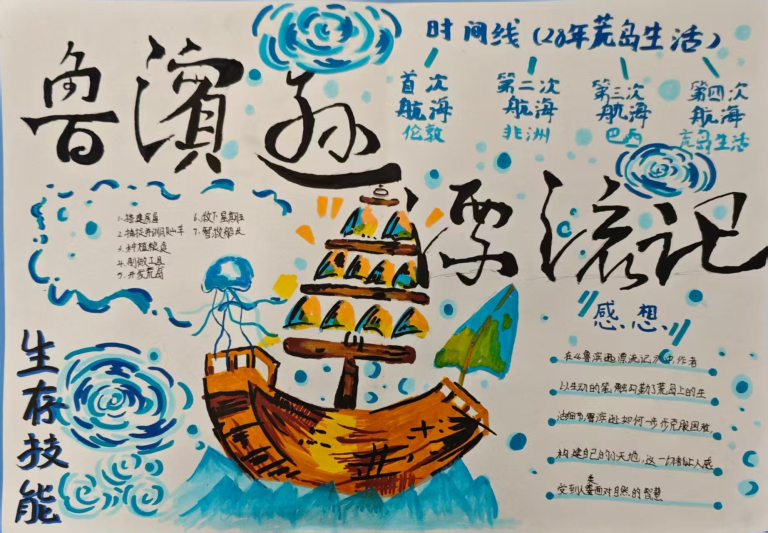 鲁滨孙
漂流记
时间线（28年荒岛生活）
首次
航海
伦敦
第二次
航海
非洲
第三次
航海
巴西
第四次
航海
荒岛生活
1.搭建房屋
2.捕捉并驯服山羊
3.种植粮食
4.制做工具
5.开发荒岛
6.救下星期五
7.智救船长
生存技能
感想
在《鲁滨逊漂流记》中,作者
以生动的笔触勾勒了荒岛上的生
活细节,鲁滨逊如何一步步克服困难,
构建自己的小天地,这一
受到人类面对自然的智慧